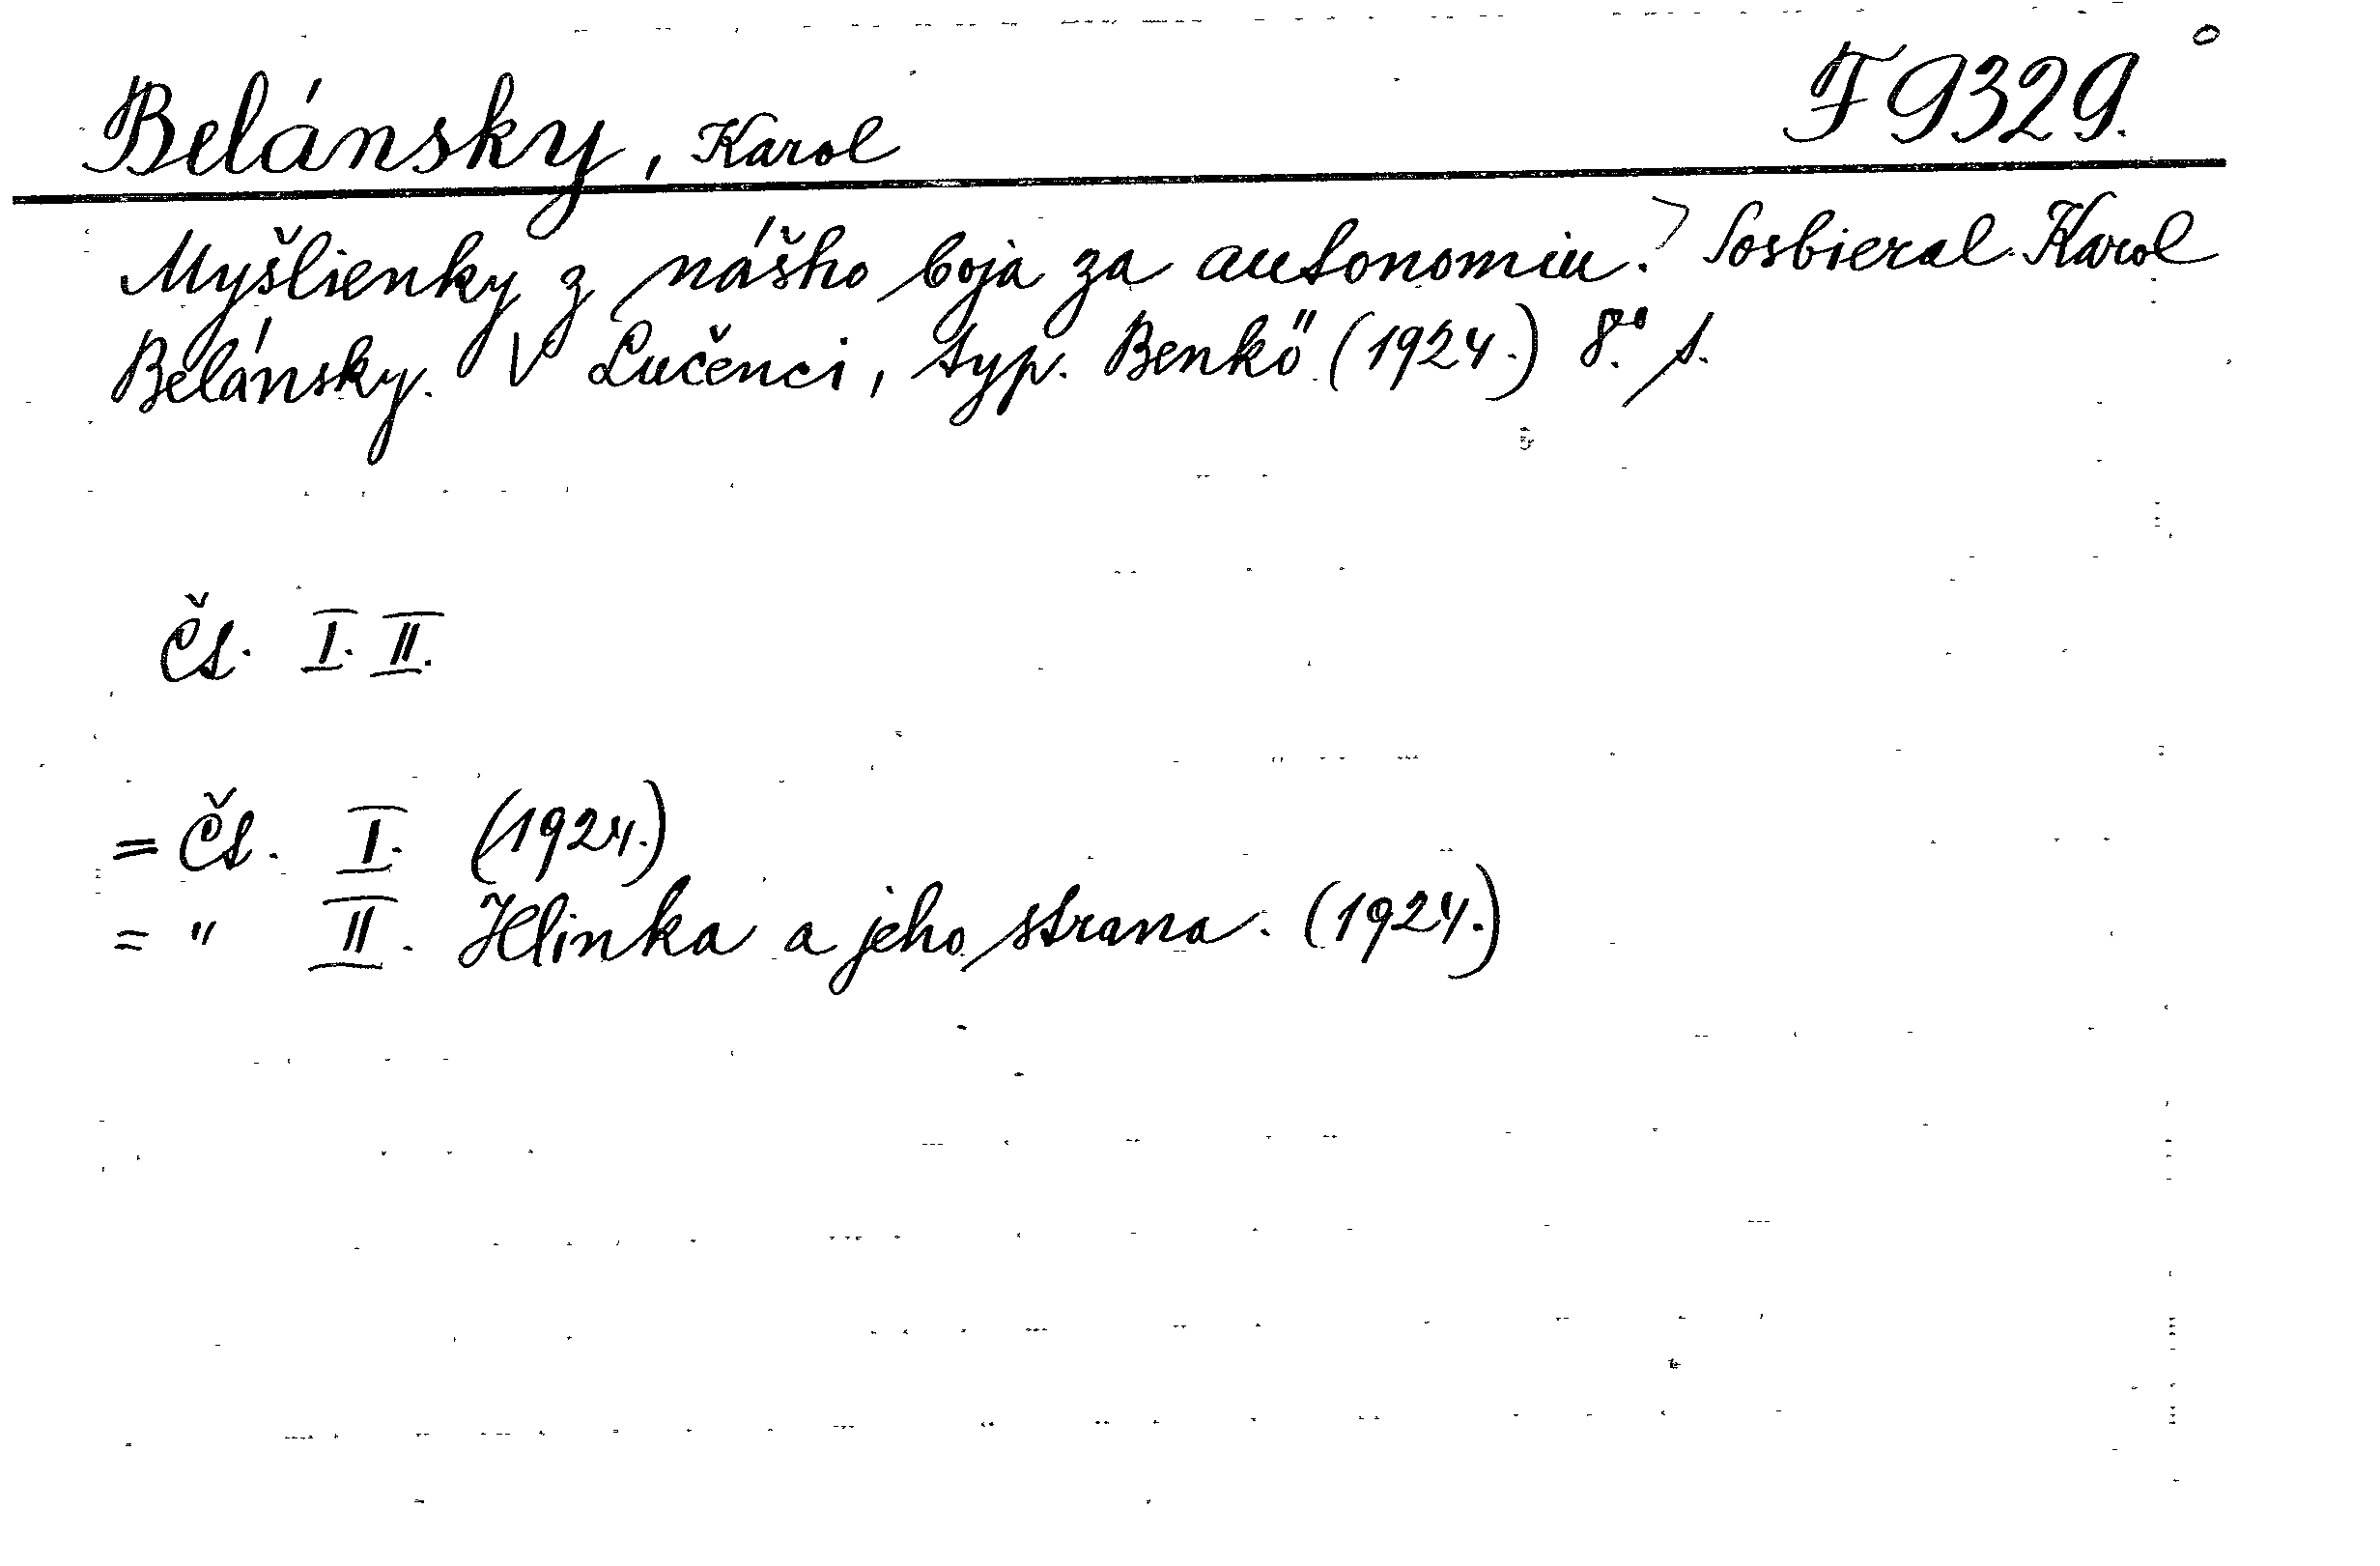 Belánsky, Karol F 9329.°
Myšlienky z nášho boja za autonomiu? Sosbieral Karol
Belánsky. V Lučenci, typ. Benkő (1924.) 8.° s.
Čs. I. II.
= Čs. I. (1924.)
= " II. Hlinka a jeho strana. (1924.)